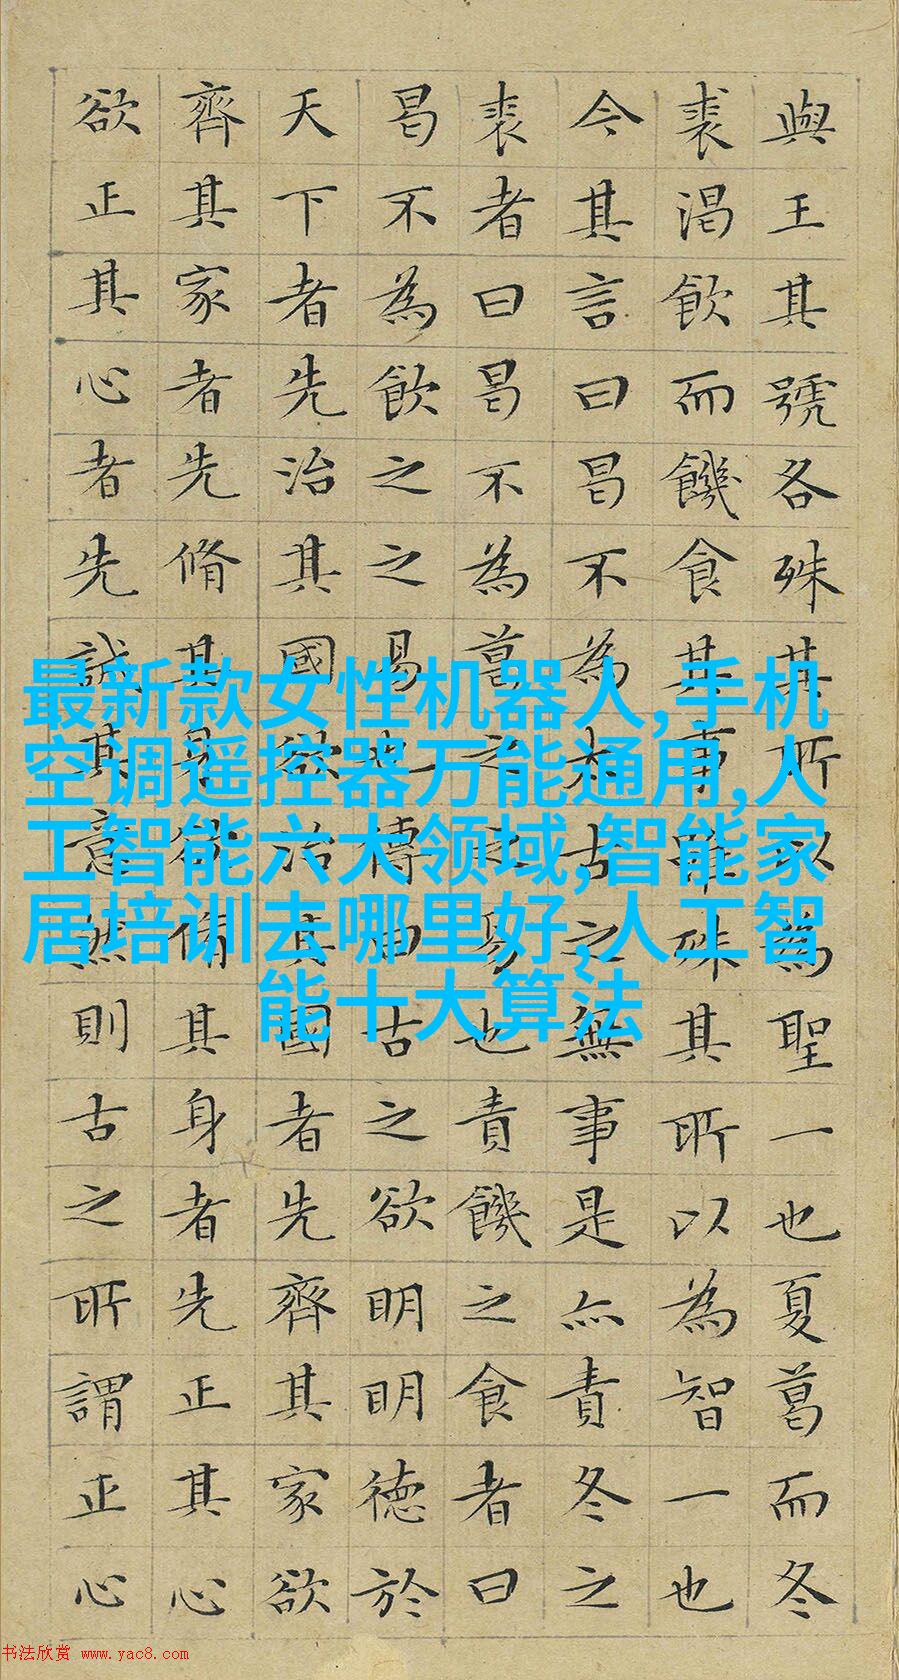 與王其號各殊其所以為聖一也夏葛而冬
裘渴飲而饑食其事雖殊其所以為智一也
今其言曰曷不為太古之無事是亦責冬之
裘者曰曷不為葛之之易也責饑之食者曰
曷不為飲之之易也傳曰古之欲明明德於
天下者先治其國欲治其國者先齊其家欲
齊其家者先脩其身欲脩其身者先正其心
欲正其心者先誠其意然則古之所謂正心
最新款女性机器人,手机
空调遥控器万能通用,人
工智能六大领域,智能家
居培训去哪里好,人工智
能十大算法
书法欣赏 www.yac8.com